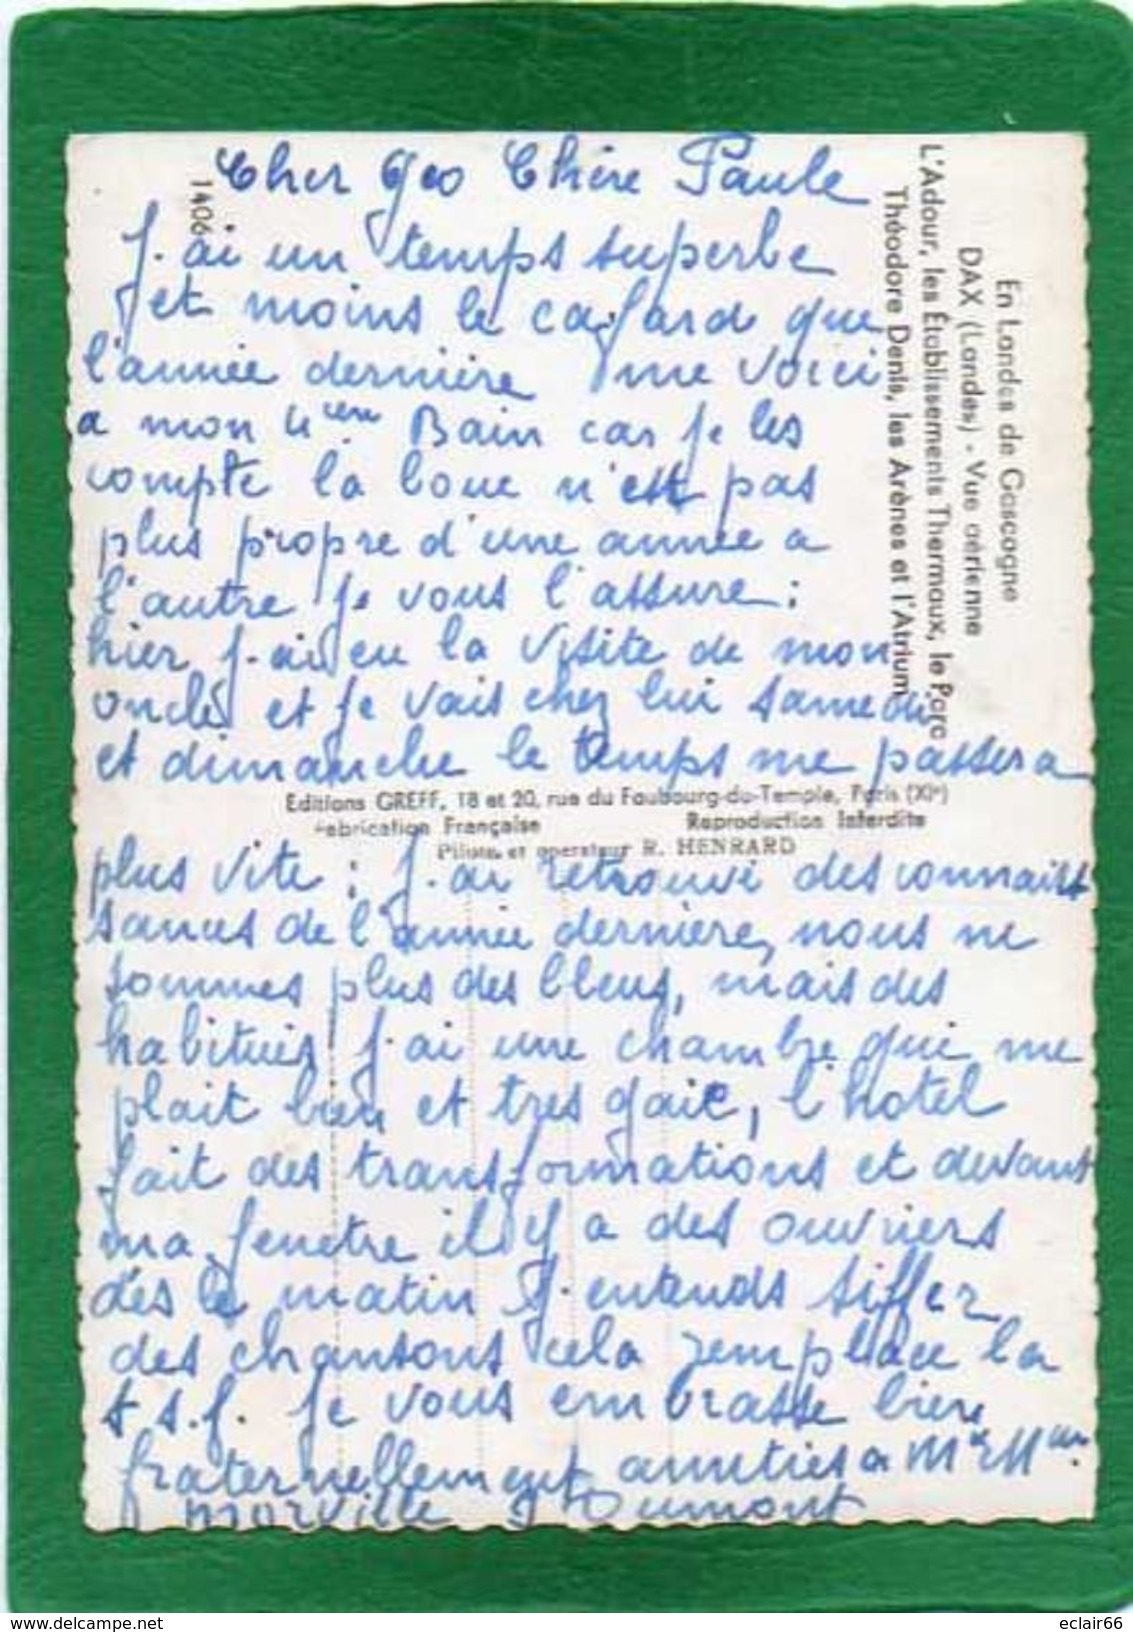 Cher Geo Chère Paule
J.ai un temps superbe
et moins le cafard que
l'année dernière me voici
a mon 4ième Bain car je les
compte la boue n'est pas
plus propre d'une année a
l'autre je vous l'assure :
hier j.ai eu la visite de mon
oncle et je vais chez lui samedi
et dimanche le temps me passera
plus vite : J.ai retrouvé des connaiss
sances de l'année dernière, nous ne
sommes plus des bleus, mais des
habitués j.ai une chambre qui me
plait bien et tres gaie, l'hotel
fait des transformations et devant
ma fenetre il y a des ouvriers
dès le matin J.entends siffler
des chansons cela remplace la
t.s.f. Je vous embrasse bien
fraternellement amitiés a Mr et Mme
Morville Dumont
En Landes de Gascogne
DAX (Landes) - Vue aérienne
L'Adour, les Établissements Thermaux, le Parc
Théodore Denis, les Arènes et l'Atrium
1406
Editions GREFF, 18 et 20, rue du Faubourg-du-Temple, Paris (XIe)
Fabrication Française Reproduction Interdite
Pilote et operateur R. HENRARD
eclair66